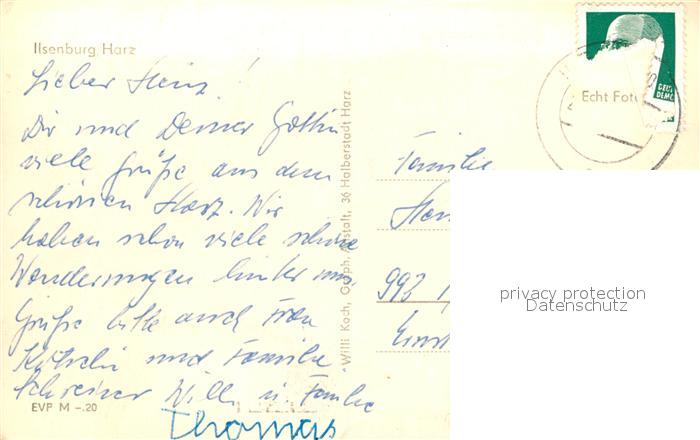 Ilsenburg, Harz
Lieber Heinz!
Dir und Deiner Gattin
viele Grüße aus dem
schönen Harz. Wir
haben schon viele schöne
Wanderungen hinter uns.
Grüße bitte auch Frau
und Familie.
Schreiner Willi u. Familie
Thomas
EVP M –.20
Willi Koch, Graph. Anstalt, 36 Halberstadt Harz
Echt Foto
DEUT
DEMO
Familie
993
Ernst
privacy protection
Datenschutz